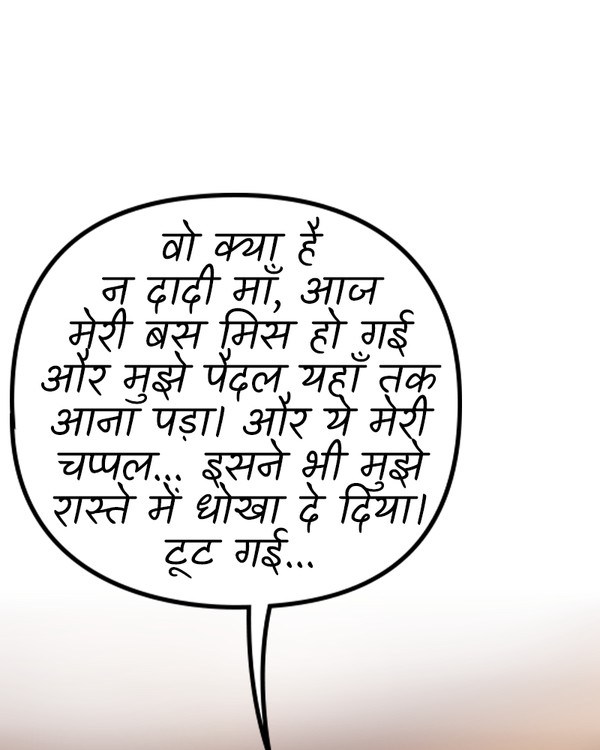 वो क्या है
न दादी माँ, आज
मेरी बस मिस हो गई
और मुझे पैदल यहाँ तक
आना पड़ा। और ये मेरी
चप्पल... इसने भी मुझे
रास्ते में धोखा दे दिया।
टूट गई...